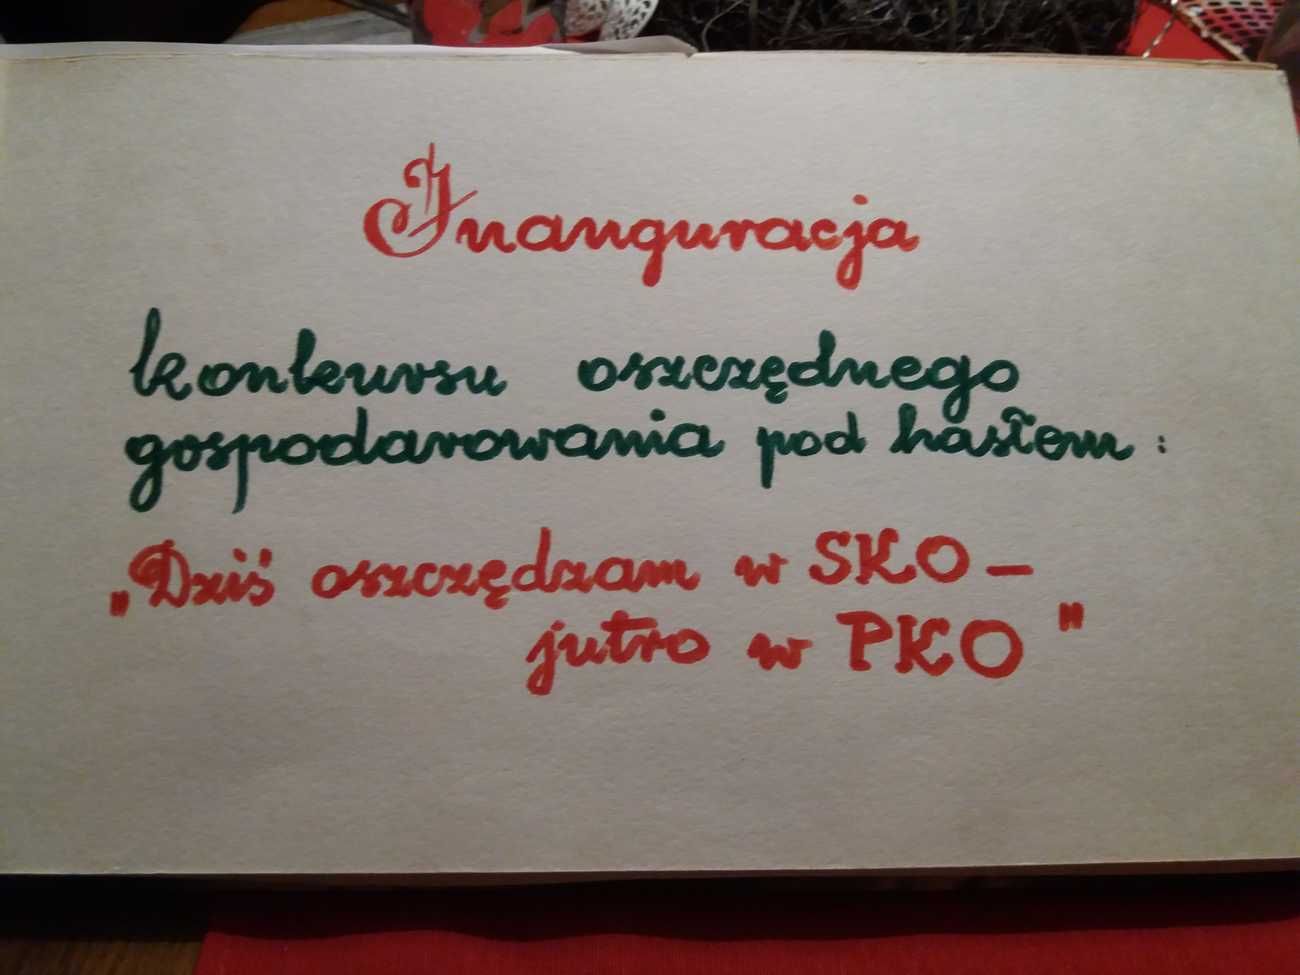 Inauguracja
konkursu oszczędnego
gospodarowania pod hasłem:
„Dziś oszczędzam w SKO –
jutro w PKO"